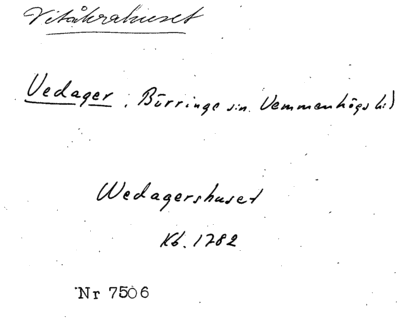 Vitåkrahuset
Vedager, Börringe sn. Vemmenhögs hd
Wedagershuset
Kb. 1782
Nr 7506